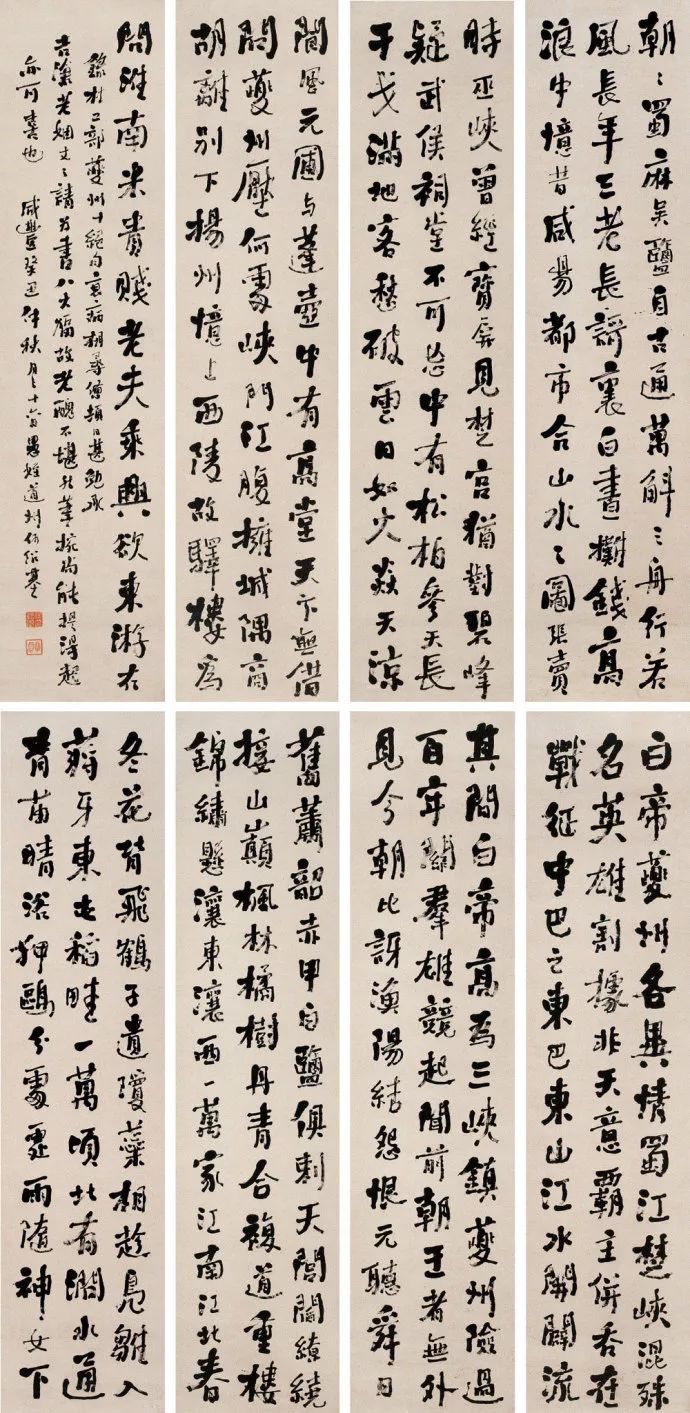 白帝夔州各異情蜀江楚峽混殊
名英雄割據非天意霸主併吞在
戰征中巴之東巴東山江水開闢流
其間白帝高為三峽鎮夔州險過
百牢關羣雄競起聞前朝王者無外
見今朝比訝漁陽結怨恨元聽舜〻日
舊蕭韶赤甲白鹽俱刺天閭閻繚繞
接山巔楓林橘樹丹青合複道重樓
錦繡懸瀼東瀼西一萬家江南江北春
冬花背飛鶴子遺瓊蘂相趁鳧雛入
蔣牙東屯稻畦一萬頃北有澗水通
青苗晴浴狎鷗分處處雨隨神〻女下
朝〻蜀麻吳鹽自古通萬斛〻舟行若
風長年三老長謌裏白晝攤錢高
浪中憶昔咸陽都市合山水〻圖張賣
時巫峽曾經寶屏見楚宮猶對碧峰
疑武侯祠堂不可忘中有松柏參天長
干戈滿地客愁破雲日如火炎天涼
閬風元圃與蓬壺中有高堂天下無借
問夔州壓何處峽門江腹擁城隅商
胡離別下揚州憶上西陵故驛樓為
問淮南米貴賤老夫乘興欲東游右
錄杜工部夔州十絕句衰病相尋日甚勉承
老姻丈〻請為書八大幅故老醜不堪尚能提得起
亦可喜也 咸豐癸丑仲秋月之十愚姪道州何紹基